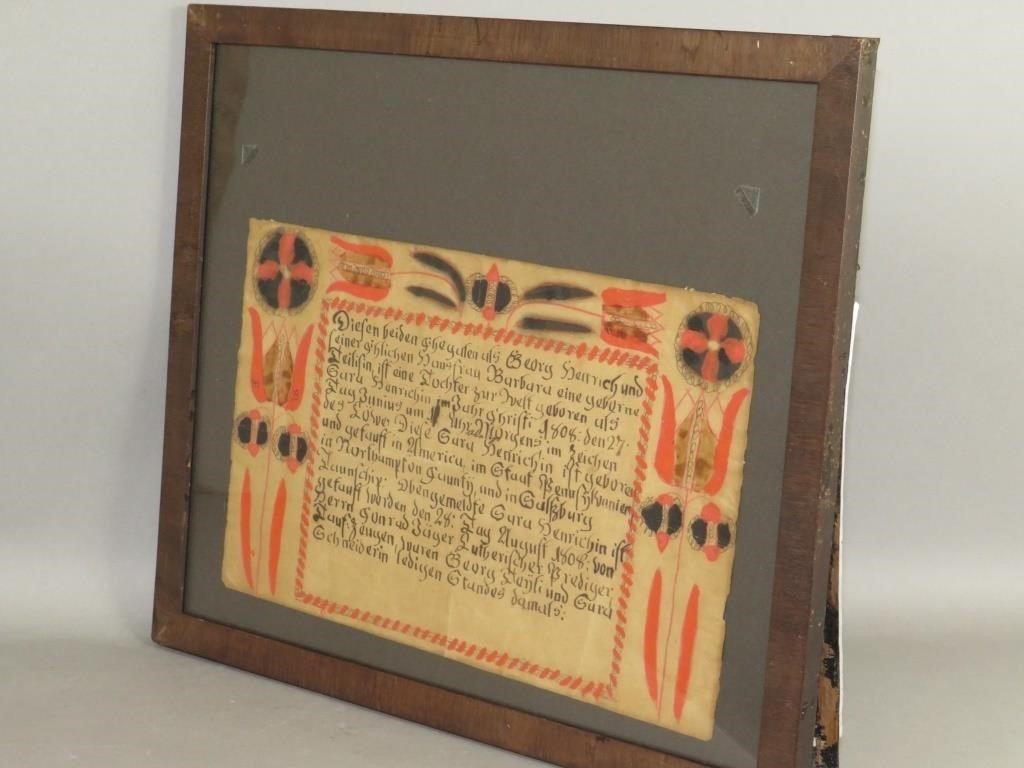 Diesen beiden Ehegatten als Georg Henrich und
seiner Ehlichen Hausfrau Barbara eine geborne
ist eine Tochter zur Welt geboren als
Sara Henrichin im Jahr Christi 1808: den 27:
Tag Junius um Uhr Morgens, im Zeichen
des Löwe: Diese Sara Henrichin ist geboren
und getauft in America, im Staat Pensylvanien
in Northampton County und in Saltzburg
Taunschip: Obengemeldte Sara Henrichin ist
getauft worden den 28: Tag August 1808: von
Herrn Conrad Jäger Lutherischer Prediger
Tauf-Zeugen waren Georg und Sara
Schneiderin ledigen Standes damals: